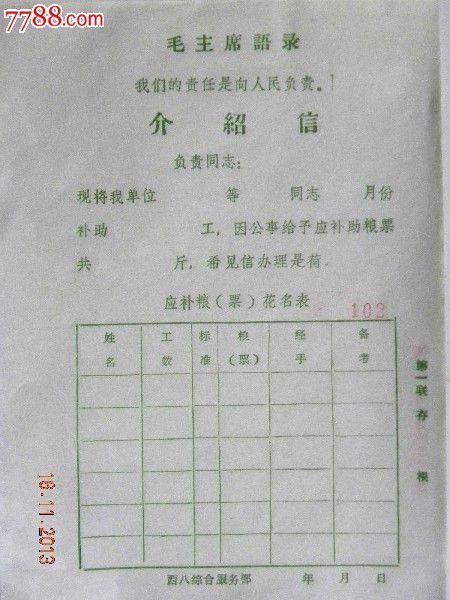 7788.com
毛主席語录
我们的责任是向人民负责。
介紹信
负责同志：
现将我单位 等 同志 月份
补助 工，因公事给予应补助粮票
共 斤，希见信办理是荷．
应补粮（票）花名表
103
姓名 工数 标准 粮（票） 经手 备考
第一联存根
西八综合服务部 年 月 日
16.11.2013